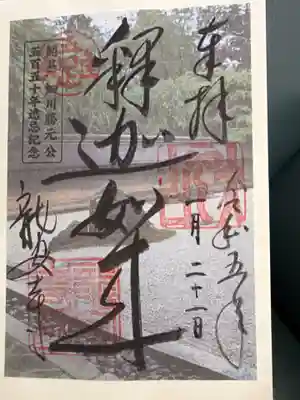 奉拝
令和五年
一月二十一日
釋迦如来
開基細川勝元公
五百五十年遠忌記念
龍安寺